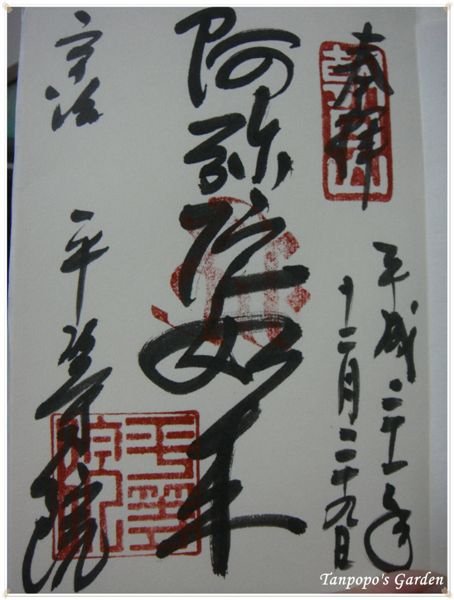 奉拝
平成二十一年
十二月二十九日
阿弥陀如来
宇治
平等院
平等
院印
Tanpopo's Garden